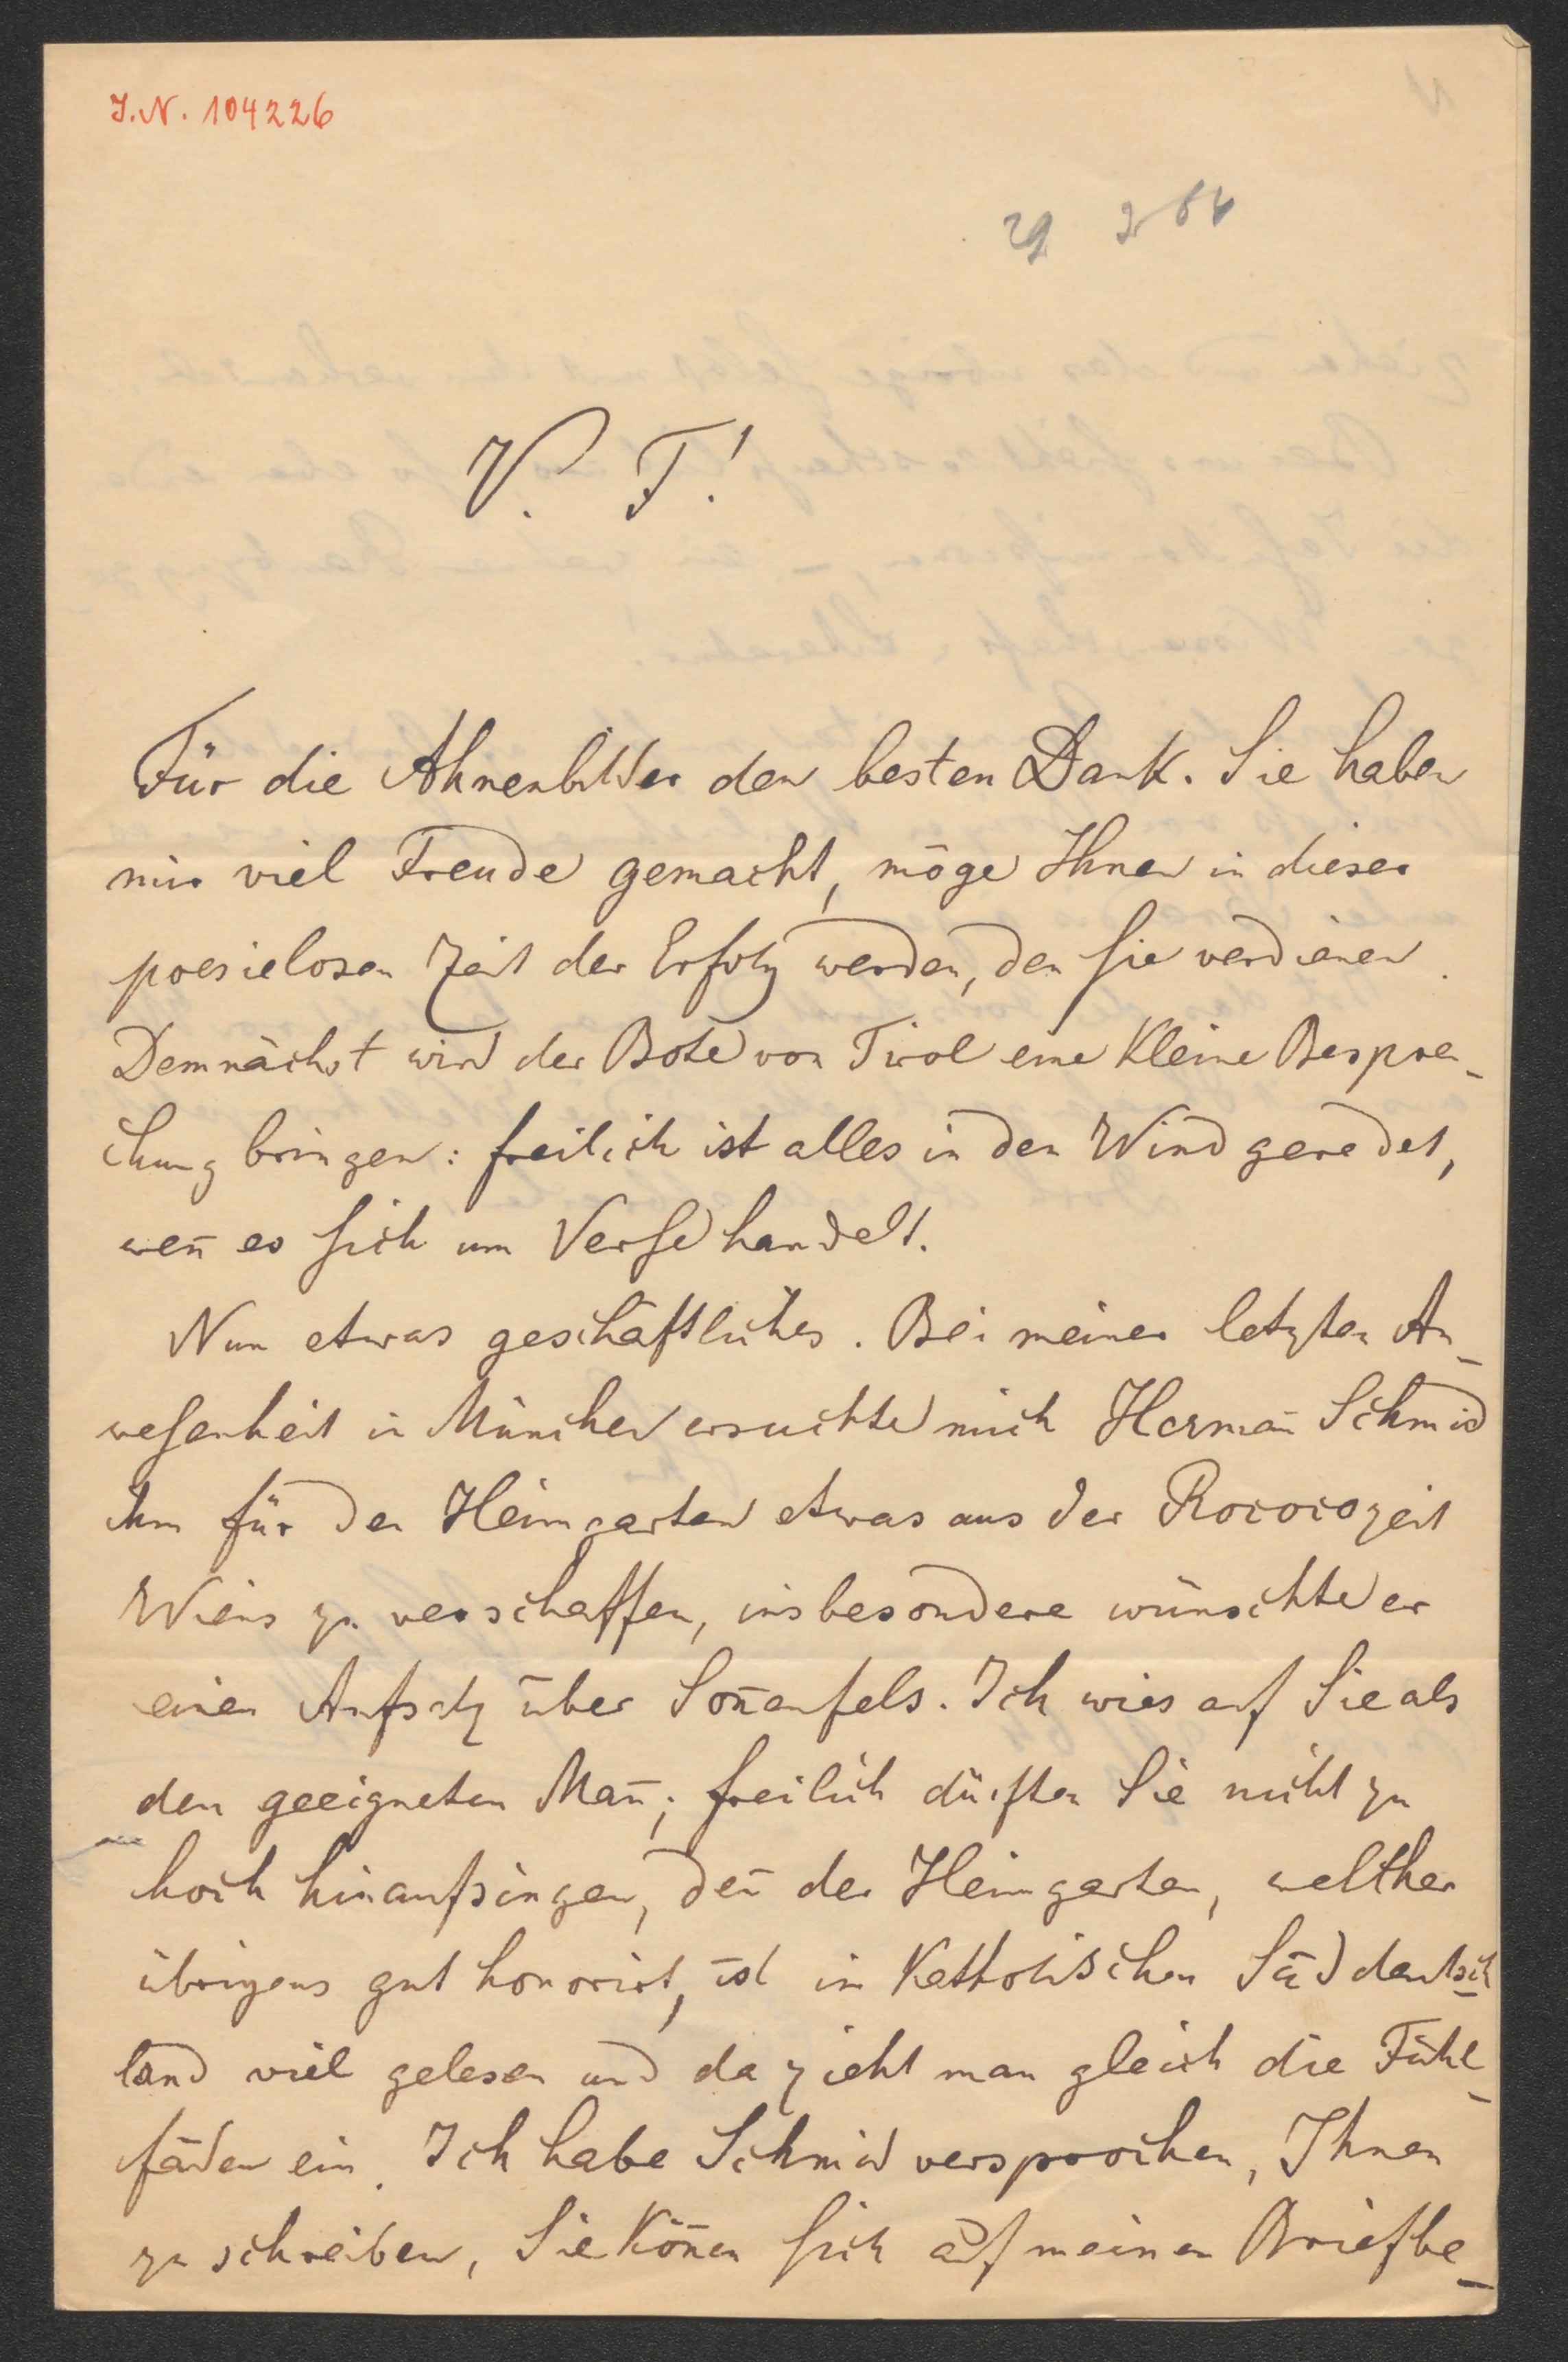 I.N. 104226
29 2 64
V. T!
Für die Ahnenbilder den besten Dank. Sie haben
mir viel Freude gemacht, möge Ihnen in dieser
poesielosen Zeit der Erfolg werden, den sie verdienen.
Demnächst wird der Bote von Tirol eine kleine Bespre-
chung bringen: freilich ist alles in den Wind geredet,
wen̄ es sich um Verse handelt.
Nun etwas geschäftliches. Bei meiner letzten An-
wesenheit in München ersuchte mich Herman̄ Schmid
ihm für den Heimgarten etwas aus der Rococozeit
Wiens zu verschaffen, insbesondere wünschte er
einen Aufsatz über Son̄enfels. Ich wies auf Sie als
den geeigneten Man̄; freilich dürften Sie nicht zu
hoch hinaufsingen, den̄ der Heimgarten, welcher
übrigens gut honorirt, ist im Katholischen Süddeutsch-
land viel gelesen und da zieht man gleich die Fühl-
fäden ein. Ich habe Schmid versprochen, Ihnen
zu schreiben, Sie kön̄en sich auf meinen Briefbe-